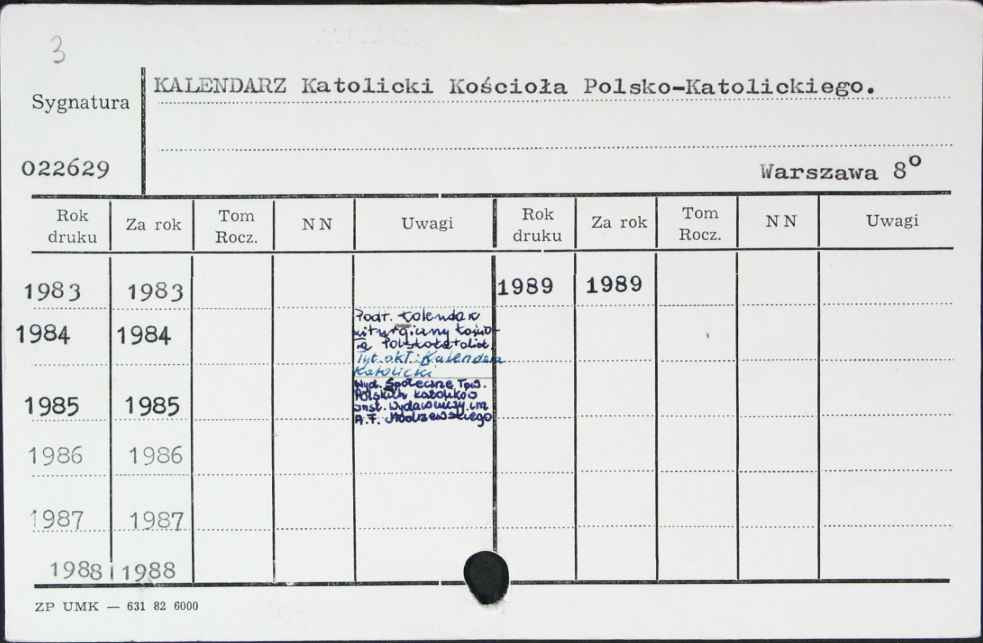 3
KALENDARZ Katolicki Kościoła Polsko-Katolickiego.
Sygnatura
022629
Warszawa 8º
Rok druku Za rok Tom Rocz. N N Uwagi Rok druku Za rok Tom Rocz. N N Uwagi
1983 1983 1989 1989
Podt. Kalendarz
1984 1984 liturgiczny
Tyt. okł.: Kalendarz
Katolicki
Wyd. Społeczne Tow.
Polskich Katolików
1985 1985 Inst. Wydawniczy im.
A.F. Modrzewskiego
1986 1986
1987 1987
1988 1988
ZP UMK — 631 82 6000